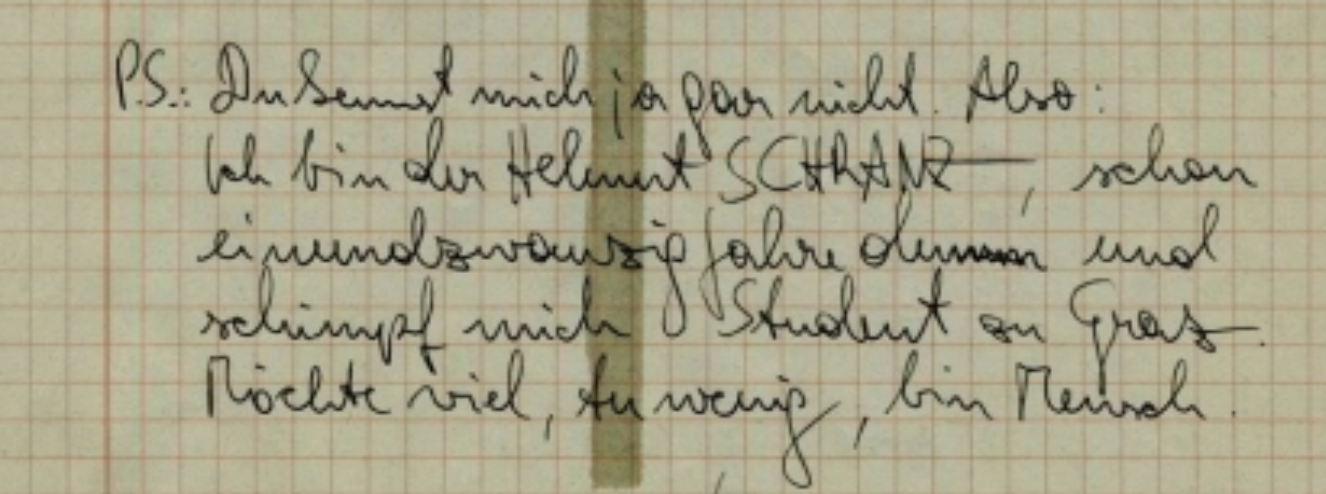 P.S.: Du kennst mich ja gar nicht. Also:
Ich bin der Helmut SCHRANZ, schon
einundzwanzig Jahre dumm und
schimpf mich Student zu Graz.
Möchte viel, tu wenig, bin Mensch.